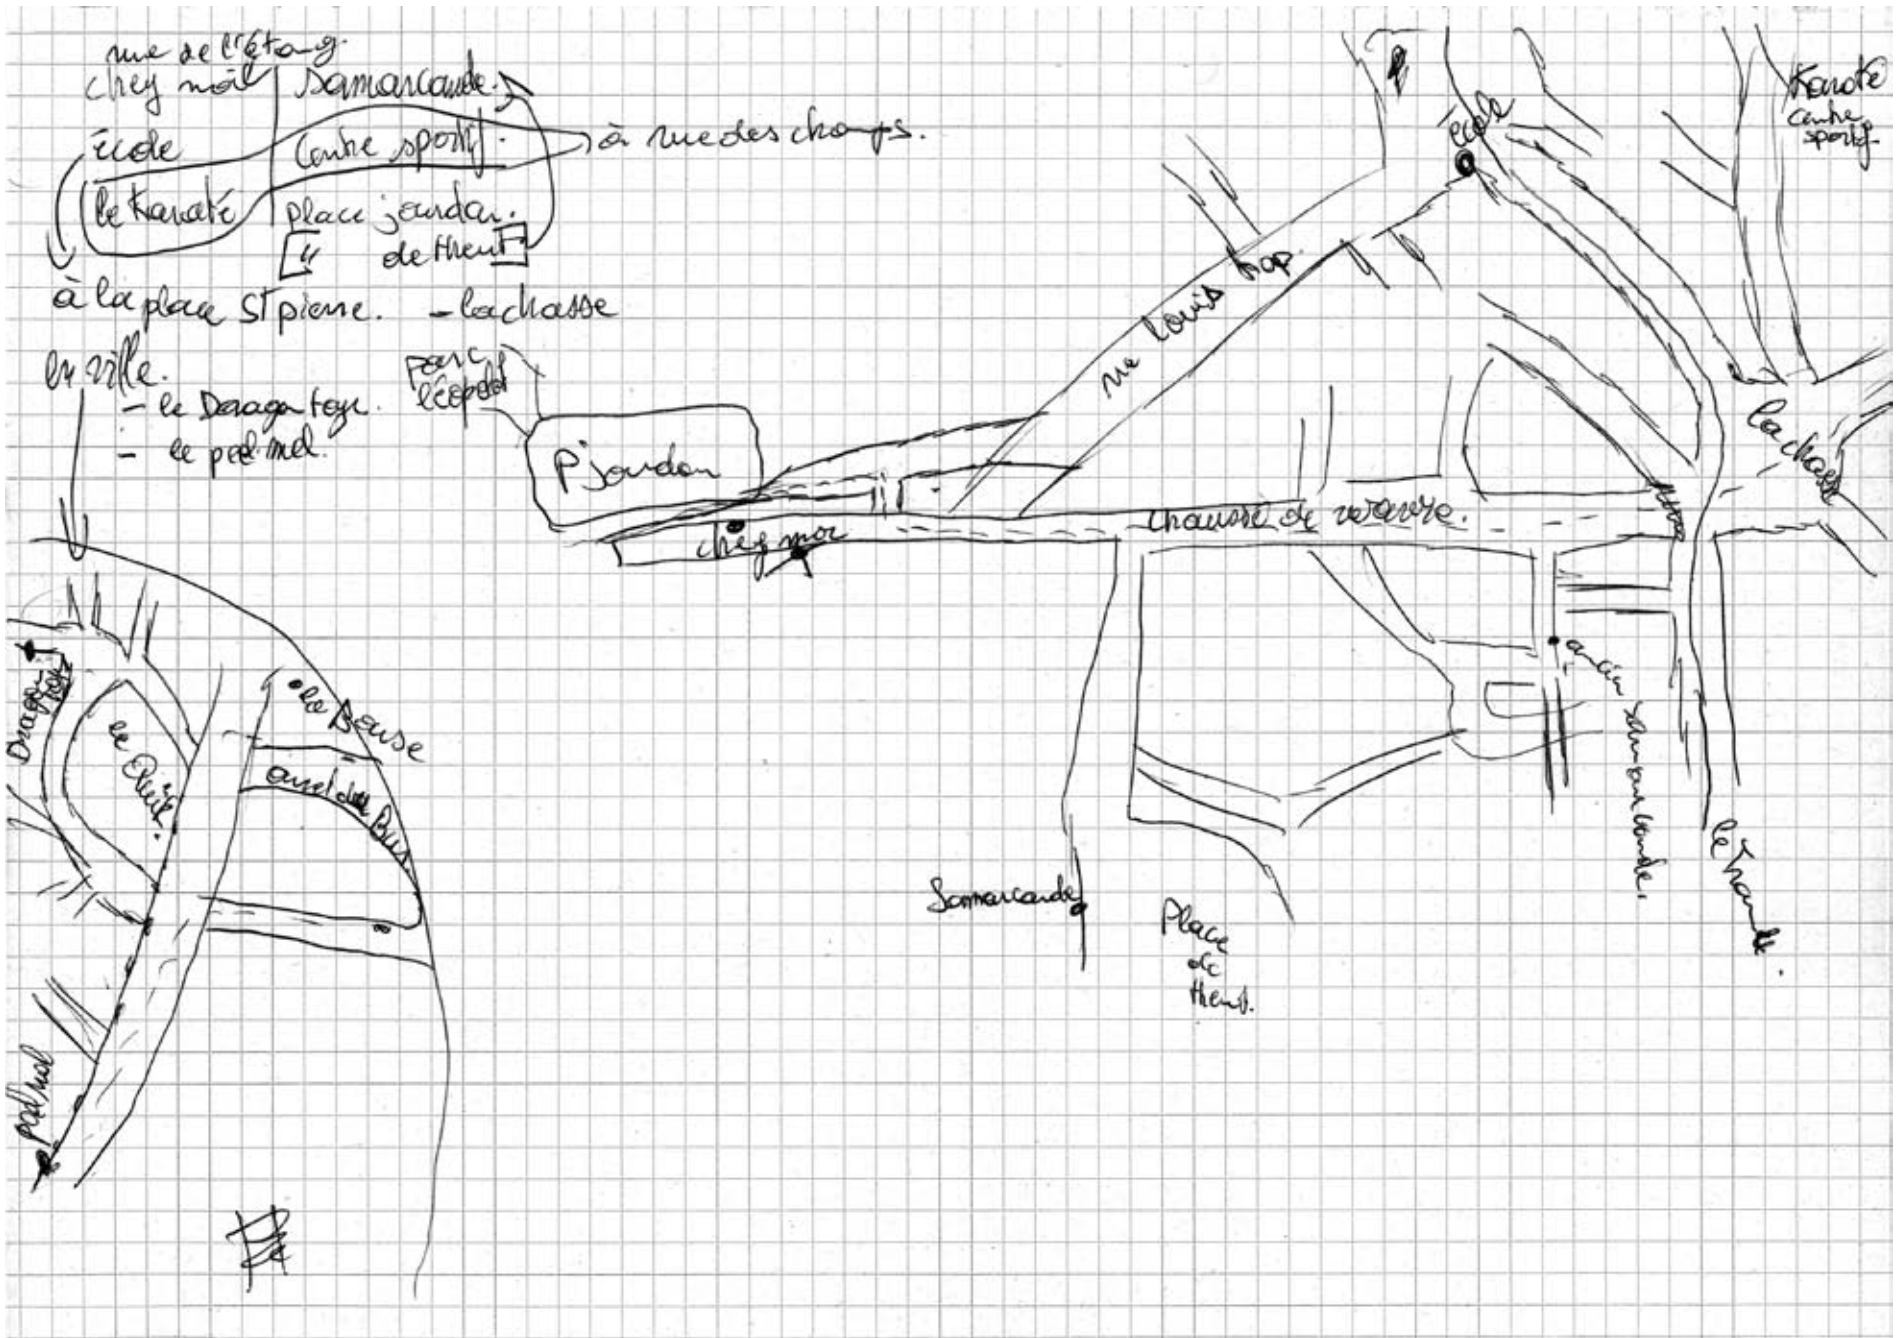 rue de l'étang.
chez moi
samarcande.
école
centre sportif.
à rue des champs.
le Karaté
place jourdan.
" de theux
à la place St pierre.
- la chasse
en ville.
- le Dragon toys.
- le pêl. mel.
parc
léopold
P'jourdan
chez moi
rue Louis hap.
école
Karaté
centre
sportif
la chasse
chaussé de wavre.
ancien samarcande.
Samarcande
Place
de
theux.
Dragon
toys
la Bourse
arret du Bus.